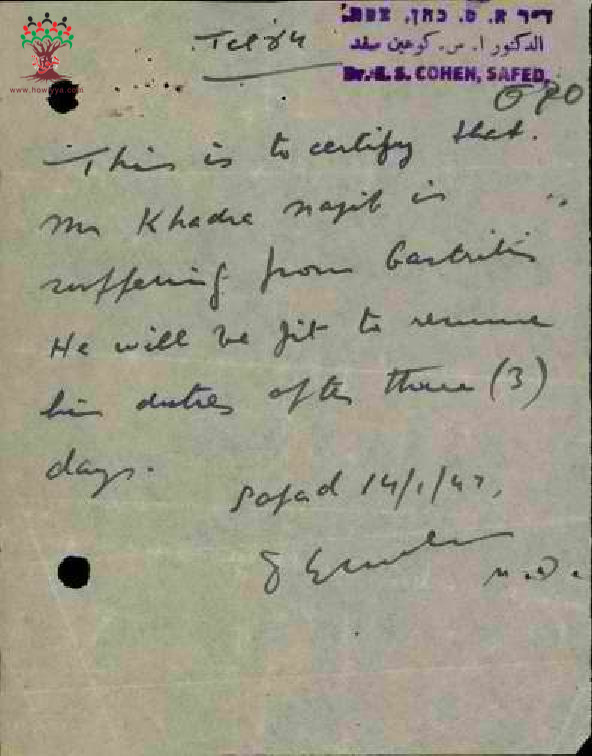 ד״ר א. ס. כהן, צפת.
الدكتور ا. س. كوهين صفد
Dr. E. S. COHEN, SAFED,
Tel 84
www.howiyya.com
This is to certify that.
Mr Khadra Najib is
suffering from Gastritis
He will be fit to resume
his duties after three (3)
days.
Safad 14/1/47,
M.D.